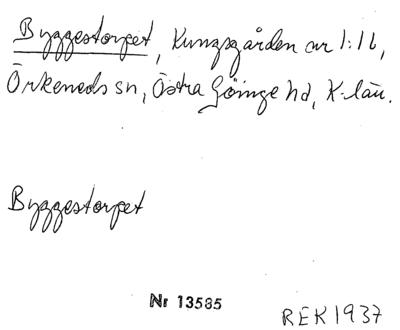 Byggestorpet, Kungsgården nr 1:16,
Örkeneds sn, Östra Göinge hd, K-län.
Byggestorpet
Nr 13585
REK 1937